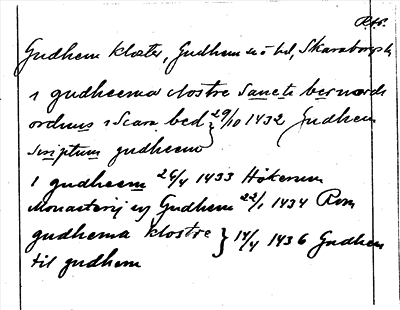 Rbr.
Gudhem kloster, Gudhem sn o bd, Skaraborgs l
i gudheema clostre Sancti bernards
ordens i Scara bed } 29/10 1432 Gudhem
scriptum gudheem
I gudheem 26/4 1433 Hökerum
Monasterij ej Gudhem 22/1 1434 Rom
gudhema klostre } 14/4 1436 Gudhem
til gudhem